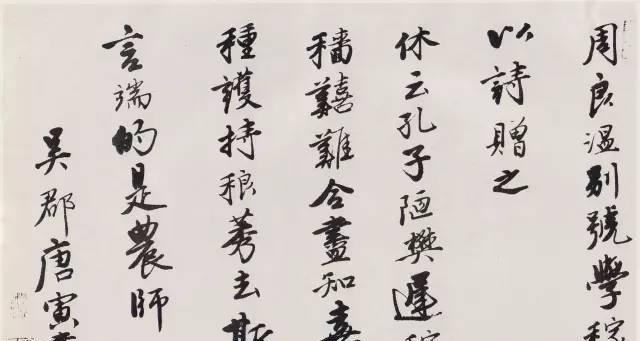 周良温別號學稼
以詩贈之
休云孔子陋樊遲稼
穡藝難合盡知嘉
種護持稂莠去斯
言端的是農師
吳郡唐寅書